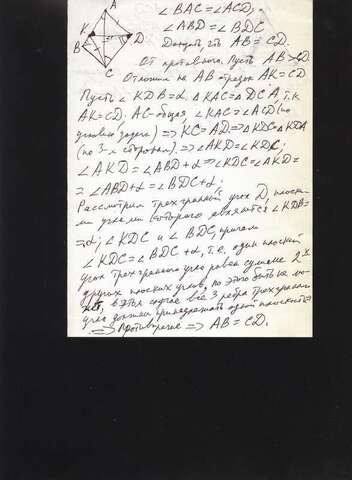 A
K
B
D
C
∠BAC=∠ACD;
∠ABD=∠BDC
Доказать, что AB=CD.
От противного. Пусть AB>CD.
Отложим на AB отрезок AK=CD
Пусть ∠KDB=α. ΔKAC=ΔDCA, т.к.
AK=CD. AC-общая ∠KAC=∠ACD (по
условию задачи) ⇒ KC=AD ⇒ ΔKDC=ΔKDA
(по 3-м сторонам). ⇒ ∠AKD=∠KDC;
∠AKD=∠ABD+α ⇒ ∠KDC=∠AKD=
=∠ABD+α=∠BDC+α.
Рассмотрим трехгранный угол D, плоски-
ми углами которого являются ∠KDB=
=α; ∠KDC и ∠BDC, причем
∠KDC=∠BDC+α, т.е. один плоский
угол трехгранного угла равен сумме 2-х
других плоских углов, но этого быть не мо-
жет, в этом случае все 3 ребра трехгранного
угла должны принадлежать одной плоскости
⇒ Противоречие ⇒ AB=CD.